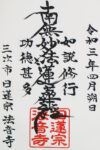 令和三年四月朔日
如説修行
南無妙法蓮華経
功徳甚多
三次市日蓮宗法音寺
日蓮宗
法音寺